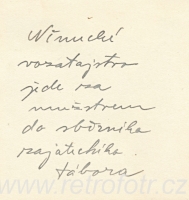 Německé
vozatajstvo
jede za
mužstvem
do sběrníka
zajateckého
tábora
www.retrofotr.cz